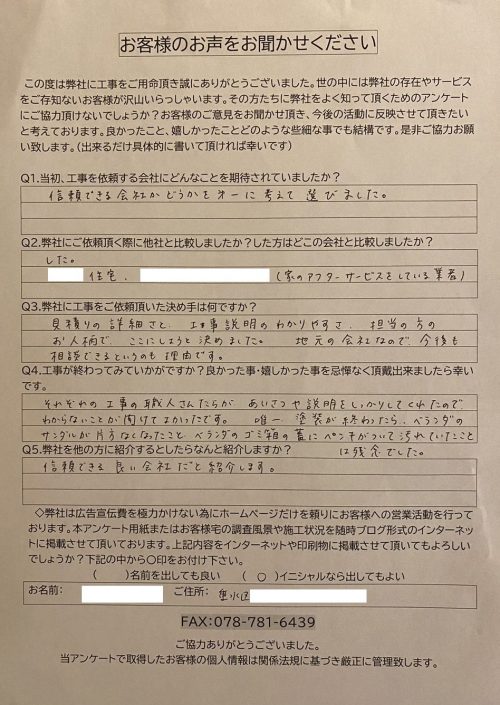 お客様のお声をお聞かせください
この度は弊社に工事をご用命頂き誠にありがとうございました。世の中には弊社の存在やサービス
をご存知ないお客様が沢山いらっしゃいます。その方たちに弊社をよく知って頂くためのアンケート
にご協力頂けないでしょうか？お客様のご意見をお聞かせ頂き、今後の活動に反映させて頂きたい
と考えております。良かったこと、嬉しかったことどのような些細な事でも結構です。是非ご協力お願
い致します。(出来るだけ具体的に書いて頂ければ幸いです)
Q1.当初、工事を依頼する会社にどんなことを期待されていましたか？
信頼できる会社かどうかを第一に考えて選びました。
Q2.弊社にご依頼頂く際に他社と比較しましたか？した方はどこの会社と比較しましたか？
した。
住宅、(家のアフターサービスをしている業者)
Q3.弊社に工事をご依頼頂いた決め手は何ですか？
見積りの詳細さと、工事説明のわかりやすさ、担当の方の
お人柄で、ここにしようと決めました。地元の会社なので、今後も
相談できるというのも理由です。
Q4.工事が終わってみていかがですか？良かった事・嬉しかった事を忌憚なく頂戴出来ましたら幸い
です。
それぞれの工事の職人さんたちが、あいさつや説明をしっかりしてくれたので
わからないことが聞けてよかったです。唯一、塗装が終わったら、ベランダの
サンダルが片方なくなったこと、ベランダのゴミ箱の蓋にペンキがついて汚れていたこと
は残念でした。
Q5.弊社を他の方に紹介するとしたらなんと紹介しますか？
信頼できる良い会社だと紹介します。
◇弊社は広告宣伝費を極力かけない為にホームページだけを頼りにお客様への営業活動を行って
おります。本アンケート用紙またはお客様宅の調査風景や施工状況を随時ブログ形式のインターネッ
トに掲載させて頂いております。上記内容をインターネットや印刷物に掲載させて頂いてもよろしい
でしょうか？下記の中から〇印をお付け下さい。
(　　)名前を出しても良い　(　○　)イニシャルなら出してもよい
お名前：　ご住所：垂水区
FAX：078-781-6439
ご協力ありがとうございました。
当アンケートで取得したお客様の個人情報は関係法規に基づき厳正に管理致します。